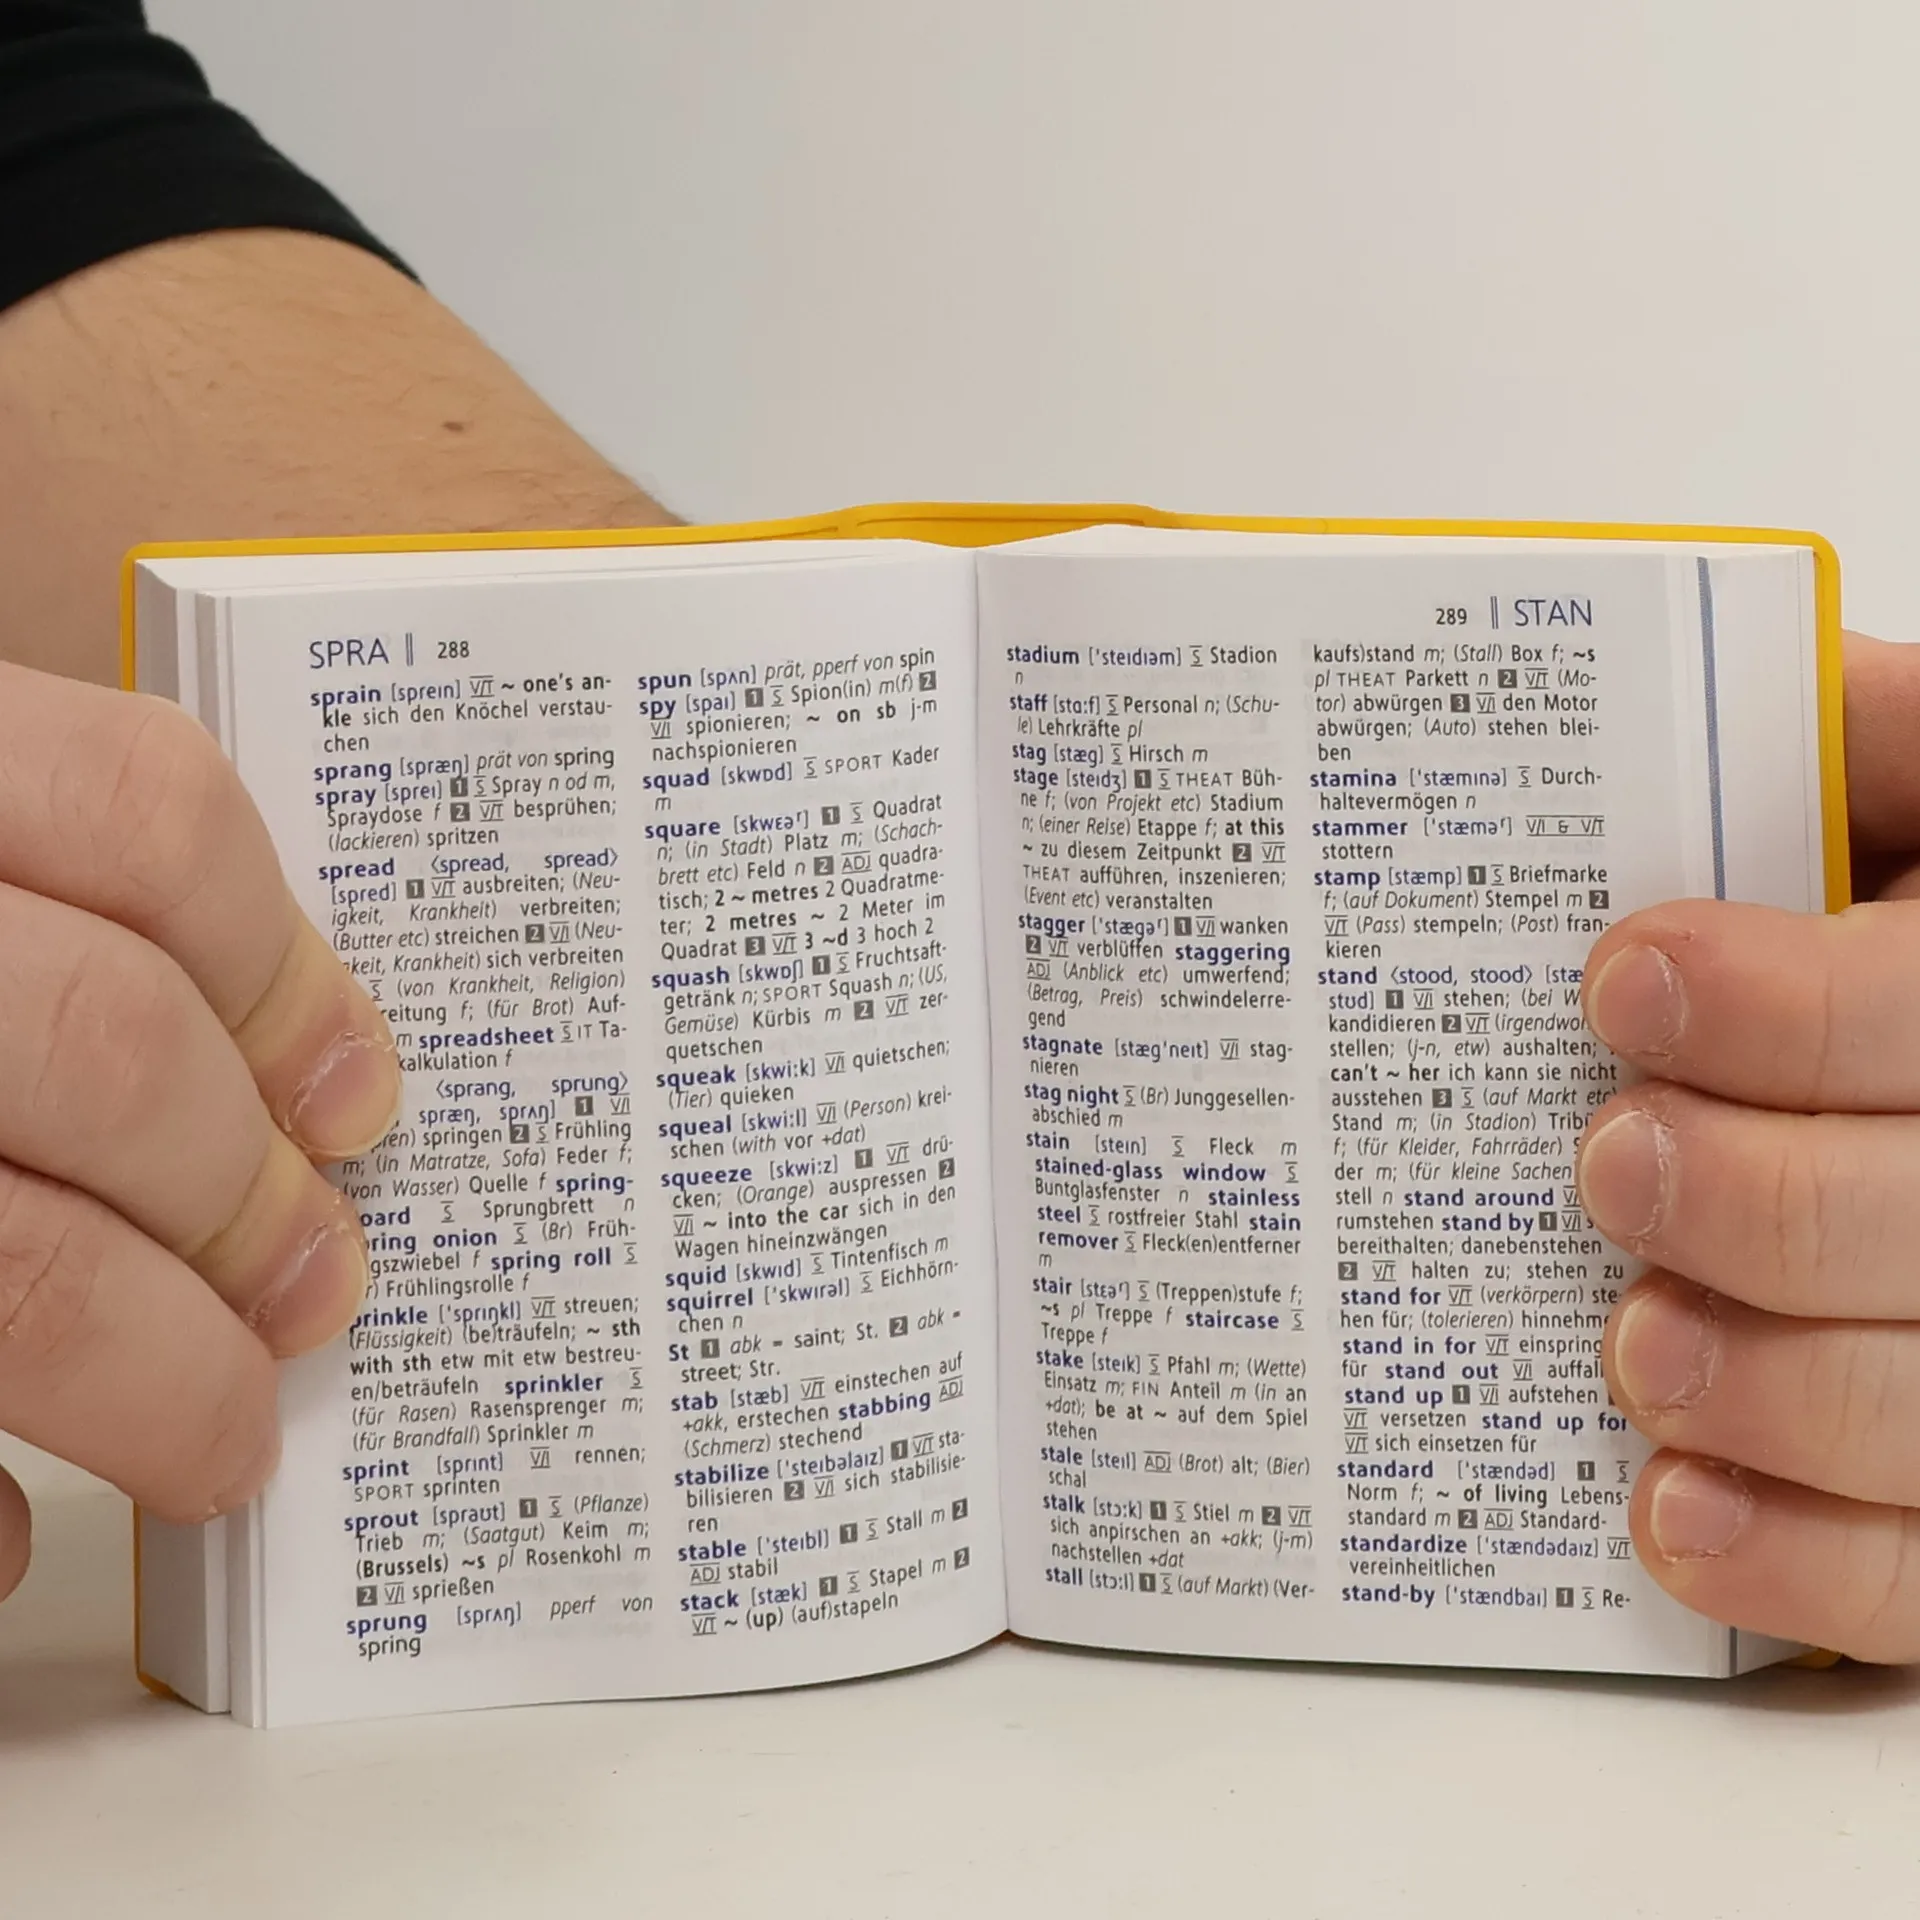 SPRA ‖ 288
sprain [spreɪn] V/T ~ one's an-
kle sich den Knöchel verstau-
chen
sprang [spræŋ] prät von spring
spray [spreɪ] 1 S Spray n od m,
Spraydose f 2 V/T besprühen;
(lackieren) spritzen
spread ⟨spread, spread⟩
[spred] 1 V/T ausbreiten; (Neu-
igkeit, Krankheit) verbreiten;
(Butter etc) streichen 2 V/I (Neu-
keit, Krankheit) sich verbreiten
S (von Krankheit, Religion)
reitung f; (für Brot) Auf-
m spreadsheet S IT Ta-
kalkulation f
⟨sprang, sprung⟩
spræŋ, sprʌŋ] 1 V/I
springen 2 S Frühling
m; (in Matratze, Sofa) Feder f;
(von Wasser) Quelle f spring-
oard S Sprungbrett n
ring onion S (Br) Früh-
gszwiebel f spring roll S
r) Frühlingsrolle f
prinkle ['sprɪŋkl] V/T streuen;
(Flüssigkeit) (be)träufeln; ~ sth
with sth etw mit etw bestreu-
en/beträufeln sprinkler S
(für Rasen) Rasensprenger m;
(für Brandfall) Sprinkler m
sprint [sprɪnt] V/I rennen;
SPORT sprinten
sprout [spraʊt] 1 S (Pflanze)
Trieb m; (Saatgut) Keim m;
(Brussels) ~s pl Rosenkohl m
2 V/I sprießen
sprung [sprʌŋ] pperf von
spring
spun [spʌn] prät, pperf von spin
spy [spaɪ] 1 S Spion(in) m(f) 2
V/I spionieren; ~ on sb j-m
nachspionieren
squad [skwɒd] S SPORT Kader
m
square [skwɛəʳ] 1 S Quadrat
n; (in Stadt) Platz m; (Schach-
brett etc) Feld n 2 ADJ quadra-
tisch; 2 ~ metres 2 Quadratme-
ter; 2 metres ~ 2 Meter im
Quadrat 3 V/T 3 ~d 3 hoch 2
squash [skwɒʃ] 1 S Fruchtsaft-
getränk n; SPORT Squash n; (US,
Gemüse) Kürbis m 2 V/T zer-
quetschen
squeak [skwiːk] V/I quietschen;
(Tier) quieken
squeal [skwiːl] V/I (Person) krei-
schen (with vor +dat)
squeeze [skwiːz] 1 V/T drü-
cken; (Orange) auspressen 2
V/I ~ into the car sich in den
Wagen hineinzwängen
squid [skwɪd] S Tintenfisch m
squirrel ['skwɪrəl] S Eichhörn-
chen n
St 1 abk = saint; St. 2 abk =
street; Str.
stab [stæb] V/T einstechen auf
+akk, erstechen stabbing ADJ
(Schmerz) stechend
stabilize ['steɪbəlaɪz] 1 V/T sta-
bilisieren 2 V/I sich stabilisie-
ren
stable ['steɪbl] 1 S Stall m 2
ADJ stabil
stack [stæk] 1 S Stapel m 2
V/T ~ (up) (auf)stapeln
289 ‖ STAN
stadium ['steɪdɪəm] S Stadion
n
staff [stɑːf] S Personal n; (Schu-
le) Lehrkräfte pl
stag [stæg] S Hirsch m
stage [steɪdʒ] 1 S THEAT Büh-
ne f; (von Projekt etc) Stadium
n; (einer Reise) Etappe f; at this
~ zu diesem Zeitpunkt 2 V/T
THEAT aufführen, inszenieren;
(Event etc) veranstalten
stagger ['stægəʳ] 1 V/I wanken
2 V/T verblüffen staggering
ADJ (Anblick etc) umwerfend;
(Betrag, Preis) schwindelerre-
gend
stagnate [stæg'neɪt] V/I stag-
nieren
stag night S (Br) Junggesellen-
abschied m
stain [steɪn] S Fleck m
stained-glass window S
Buntglasfenster n stainless
steel S rostfreier Stahl stain
remover S Fleck(en)entferner
m
stair [stɛəʳ] S (Treppen)stufe f;
~s pl Treppe f staircase S
Treppe f
stake [steɪk] S Pfahl m; (Wette)
Einsatz m; FIN Anteil m (in an
+dat); be at ~ auf dem Spiel
stehen
stale [steɪl] ADJ (Brot) alt; (Bier)
schal
stalk [stɔːk] 1 S Stiel m 2 V/T
sich anpirschen an +akk; (j-m)
nachstellen +dat
stall [stɔːl] 1 S (auf Markt) (Ver-
kaufs)stand m; (Stall) Box f; ~s
pl THEAT Parkett n 2 V/T (Mo-
tor) abwürgen 3 V/I den Motor
abwürgen; (Auto) stehen blei-
ben
stamina ['stæmɪnə] S Durch-
haltevermögen n
stammer ['stæməʳ] V/I & V/T
stottern
stamp [stæmp] 1 S Briefmarke
f; (auf Dokument) Stempel m 2
V/T (Pass) stempeln; (Post) fran-
kieren
stand ⟨stood, stood⟩ [stæ
stʊd] 1 V/I stehen; (bei W
kandidieren 2 V/T (irgendwo
stellen; (j-n, etw) aushalten;
can't ~ her ich kann sie nicht
ausstehen 3 S (auf Markt etc)
Stand m; (in Stadion) Tribü
f; (für Kleider, Fahrräder) S
der m; (für kleine Sachen
stell n stand around V/I
rumstehen stand by 1 V/I s
bereithalten; danebenstehen
2 V/T halten zu; stehen zu
stand for V/T (verkörpern) ste-
hen für; (tolerieren) hinnehm
stand in for V/T einspring
für stand out V/I auffal
stand up 1 V/I aufstehen
V/T versetzen stand up for
V/T sich einsetzen für
standard ['stændəd] 1 S
Norm f; ~ of living Lebens-
standard m 2 ADJ Standard-
standardize ['stændədaɪz] V/T
vereinheitlichen
stand-by ['stændbaɪ] 1 S Re-